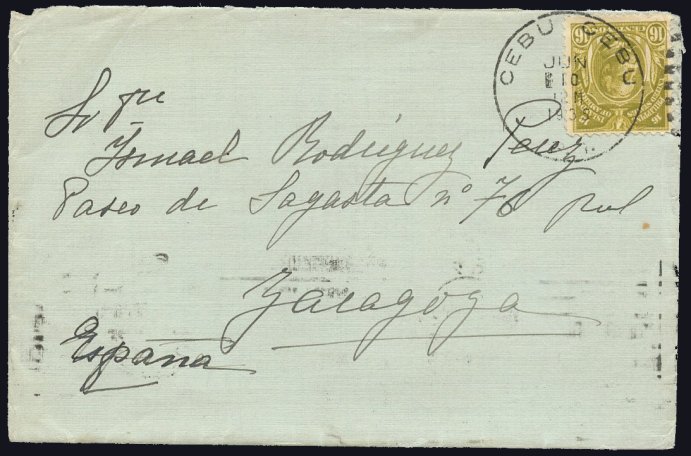 CEBU CEBU
JUN
10
1933
16 16
Sr Dn
Ismael Rodriguez Perez
Paseo de Sagasta nº 76 pral
Zaragoza
España